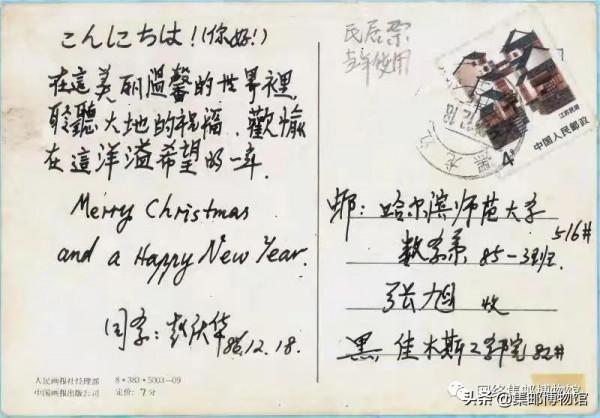 こんにちは！(你好！)
在這美丽溫馨的世界裡
聆聽大地的祝福、歡愉
在這洋溢希望的一年
Merry Christmas
and a Happy New Year.
同学:
86.12.18.
人民画报社经理部 8·383·5003-09
中国画报出版公司 定价:7分
民居票
当年使用
江苏民居
4分
中国人民邮政
邮:哈尔滨师范大学
数学系 85-3班. 516#
张旭 收
黑,佳木斯工学院 82#
网络集邮博物馆
头条@集邮博物馆